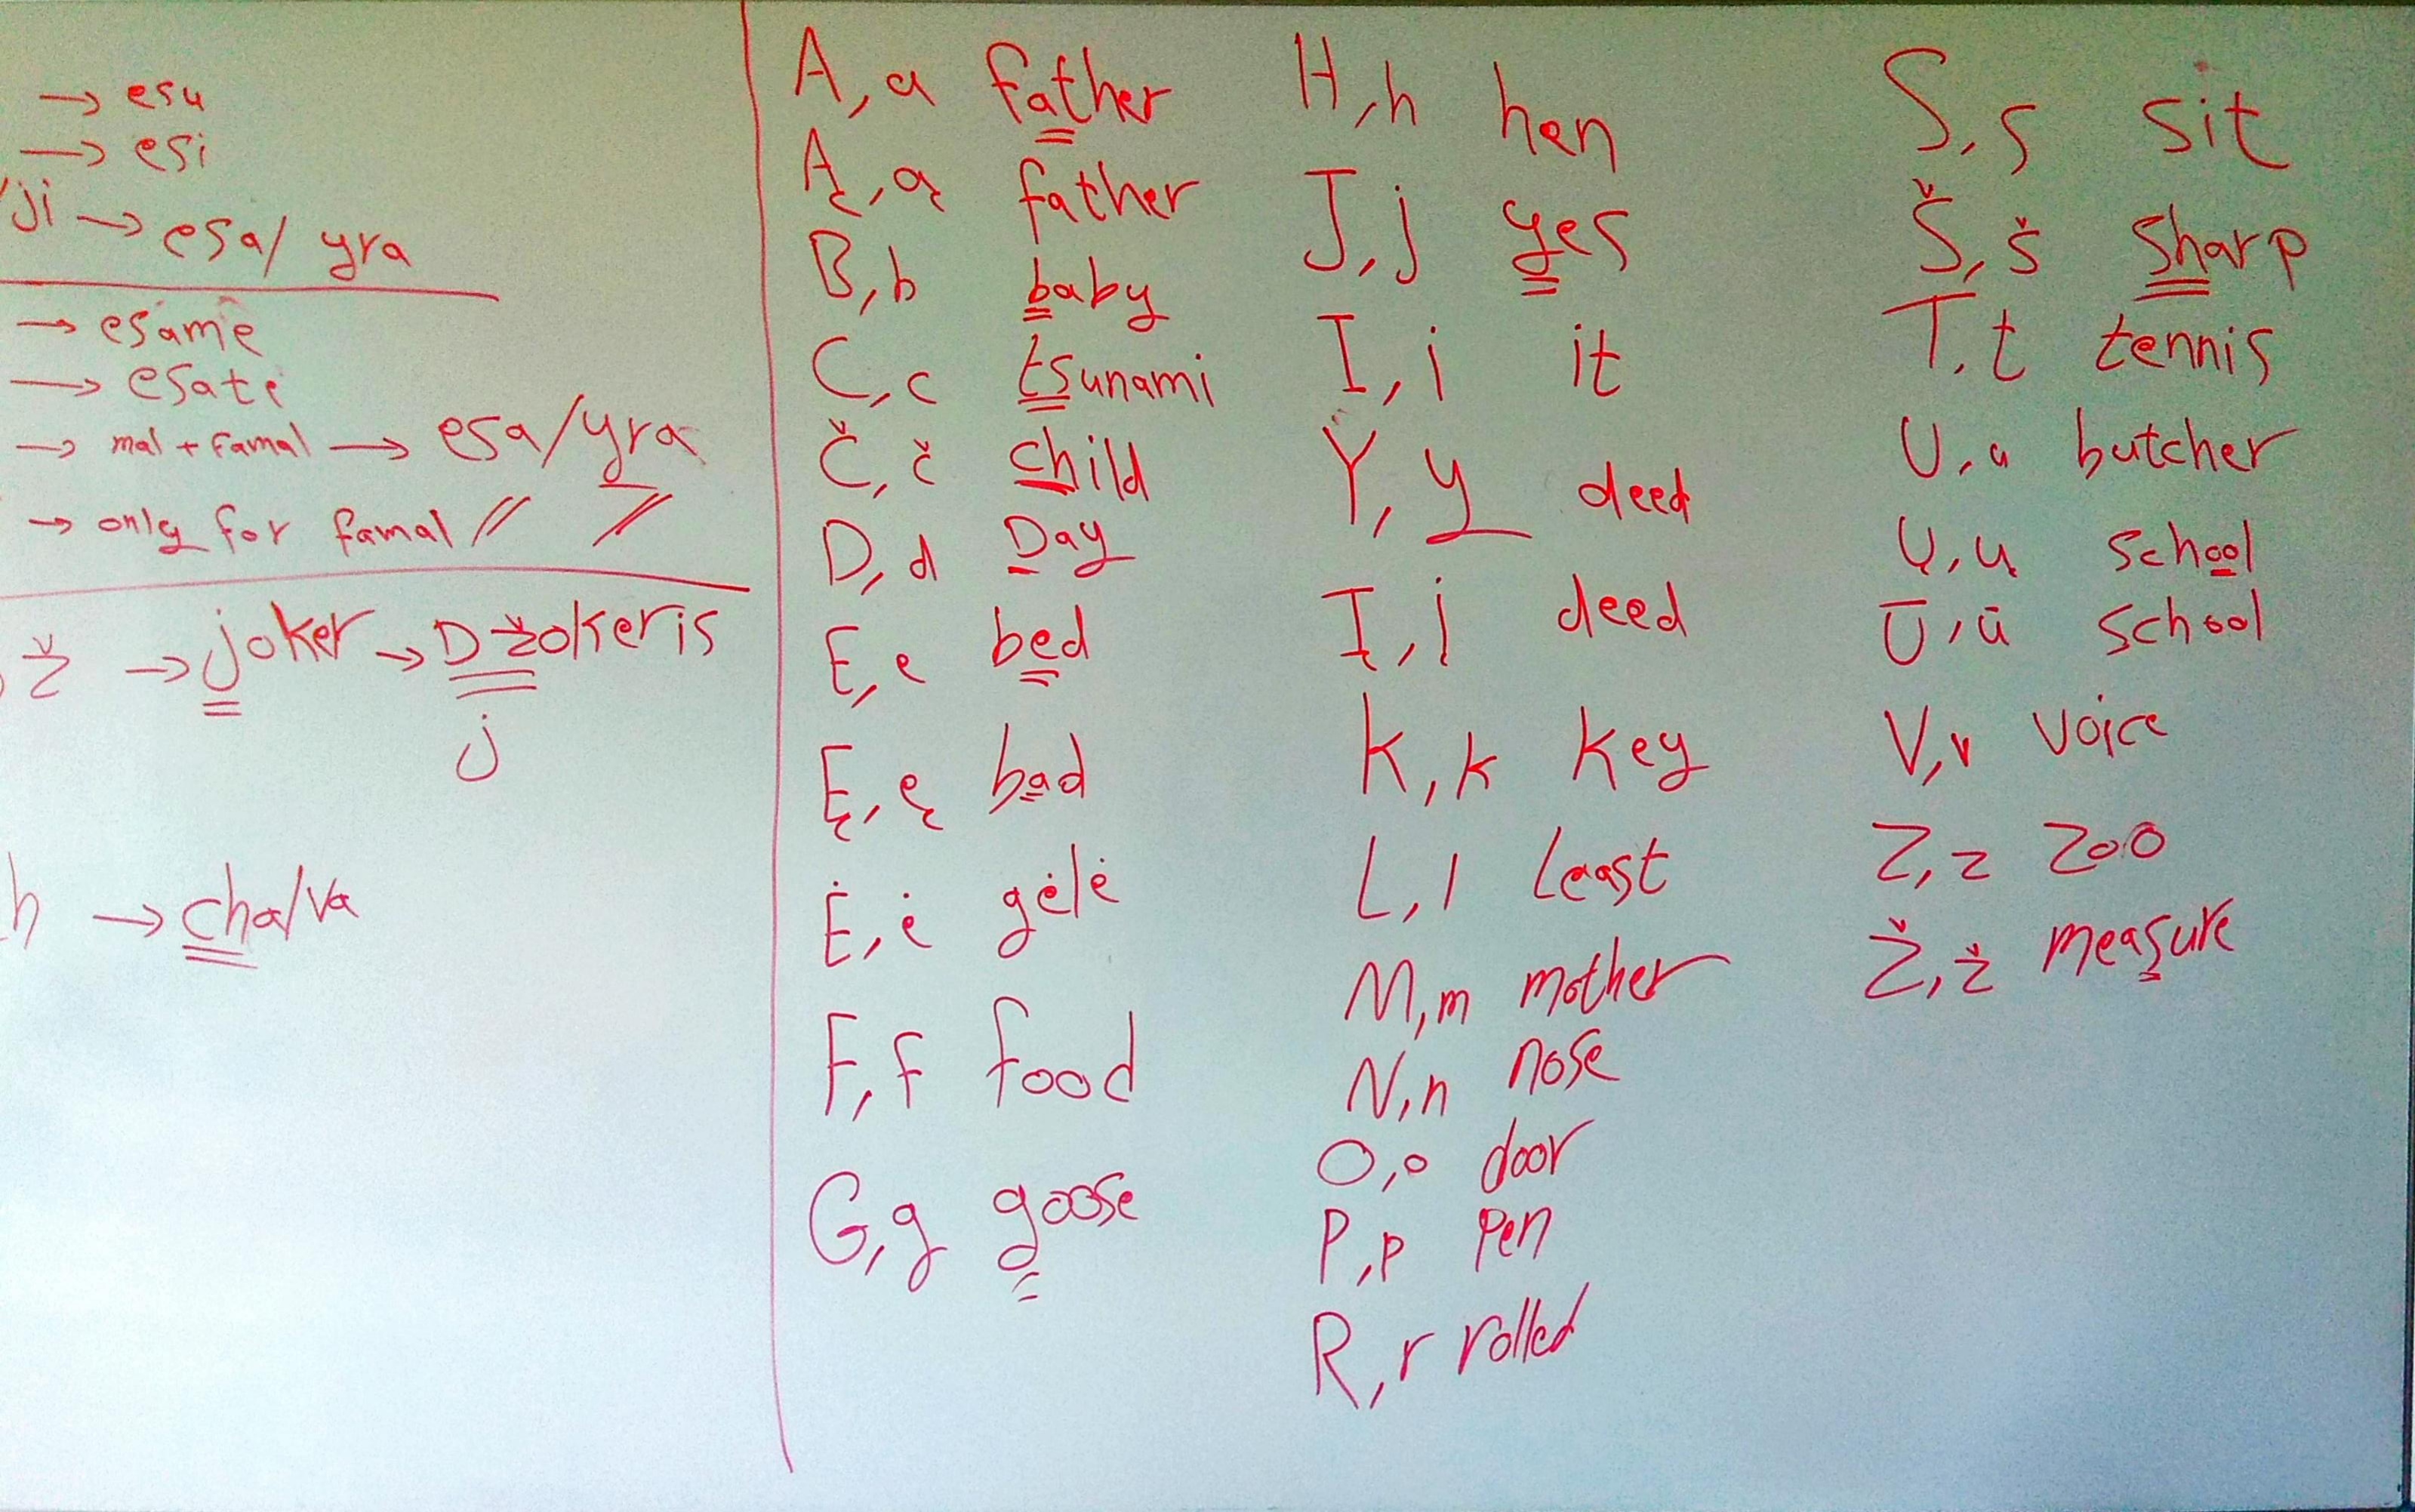 → esu
→ esi
ji → esa/ yra
→ esame
→ esate
→ mal + famal → esa/yra
→ only for famal // //
ž → joker → Džokeris
j
h → chalva
A, a father
Ą, ą father
B, b baby
C, c tsunami
Č, č child
D, d Day
E, e bed
Ę, ę bad
Ė, ė gėlė
F, f food
G, g goose
H, h hen
J, j yes
I, i it
Y, y deed
Į, į deed
K, k key
L, l Least
M, m mother
N, n nose
O, o door
P, p pen
R, r rolled
S, s sit
Š, š sharp
T, t tennis
U, u butcher
Ų, ų school
Ū, ū school
V, v voice
Z, z Zoo
Ž, ž measure